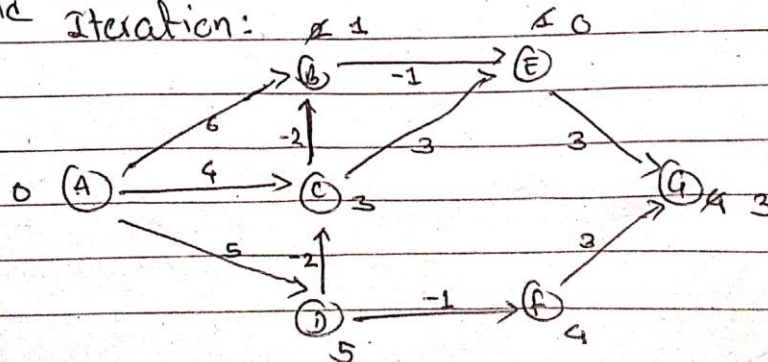 Iteration: 2 1 1 0
B -1 E
6 -2 3 3
0 A 4 C 3 G 4 3
5 -2 3
D -1 F
5 4